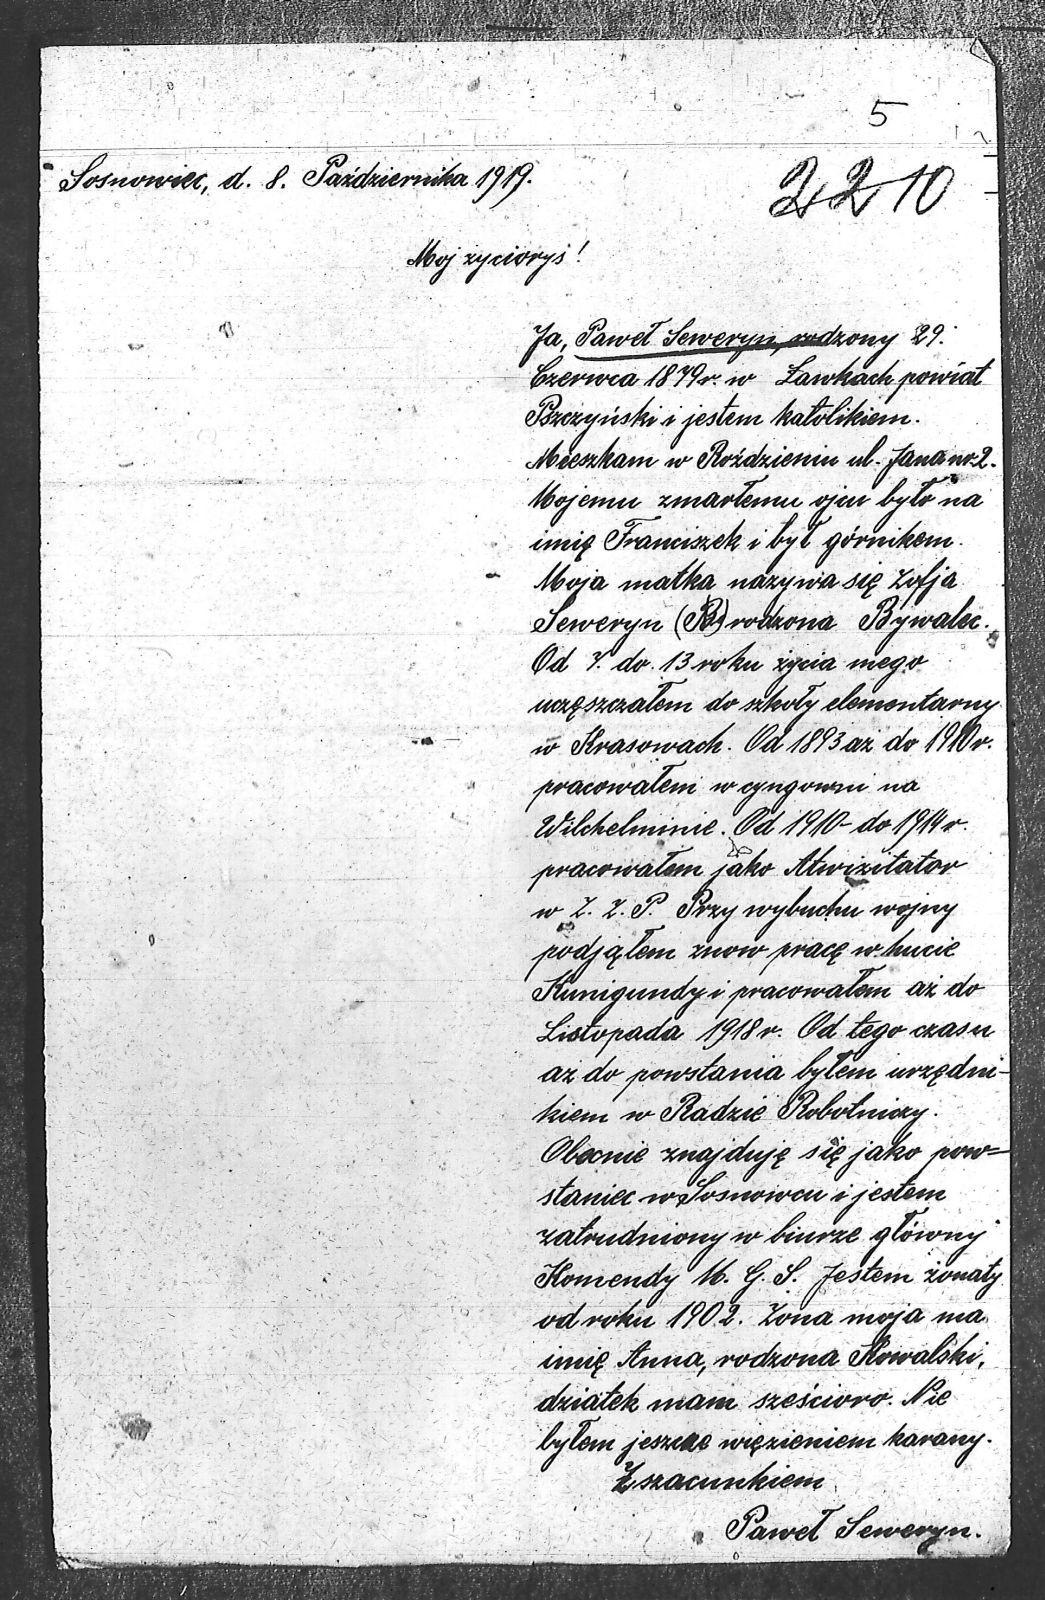 5
2210
Sosnowiec, d. 8. Października 1919.
Moj zyciorys!
Ja, Paweł Seweryn, rodzony 29.
Czerwca 1879 r. w Ławkach powiat
Pszczyński i jestem katolikiem.
Mieszkam w Roździeniu ul. Jana nr 2.
Mojemu zmarłemu ojcu było na
imię Franciszek i był górnikem.
Moja matka nazywa się Zofja
Seweryn (B) rodzona Bywalec.
Od 7. do. 13 roku życia mego
uczęszczałem do szkoły elementarny
w Krasowach. Od 1893 aż do 1910 r.
pracowałem w cyngowni na
Wilchelminie. Od 1910 - do 1914 r.
pracowałem jako
w Z. Z. P. Przy wybuchu wojny
podjąłem znow pracę w hucie
Kunigundy i pracowałem aż do
Listopada 1918 r. Od tego czasu
aż do powstania byłem urzędni-
kiem w Radzie Robotniczy.
Obecnie znajduję się jako pow=
staniec w Sosnowcu i jestem
zatrudniony w biurze główny
Komendy M. G. S. Jestem żonaty
od roku 1902. Żona moja ma
imię Anna, rodzona Kowalski,
dziatek mam sześcioro. Nie
byłem jeszcze więzieniem karany.
Z szacunkiem
Paweł Seweryn.